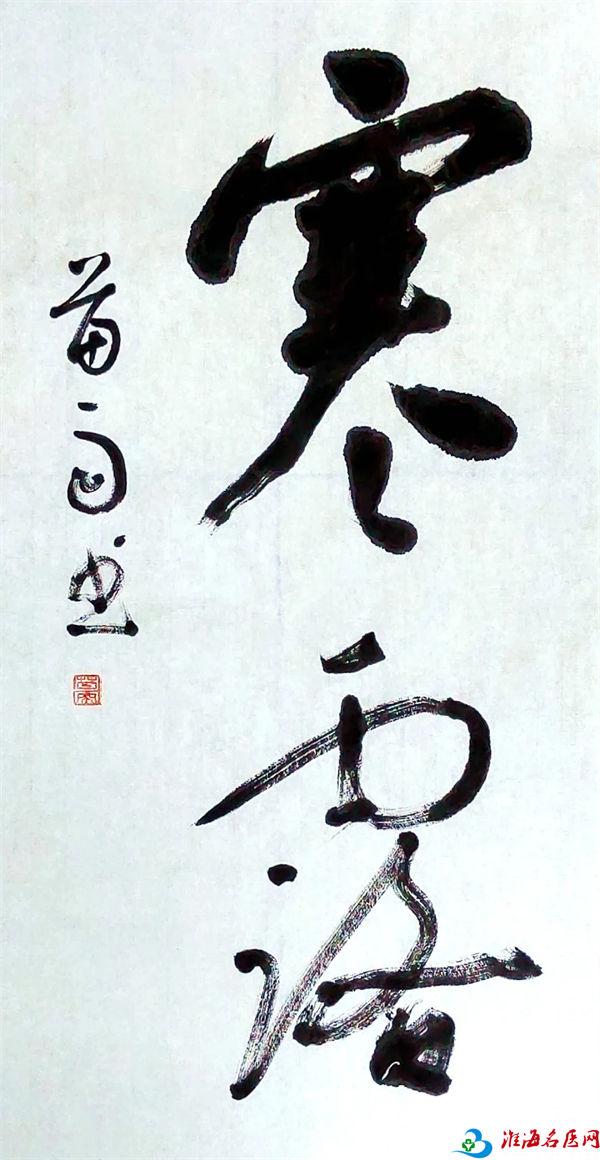 寒露
苗雨书
淮海名医网